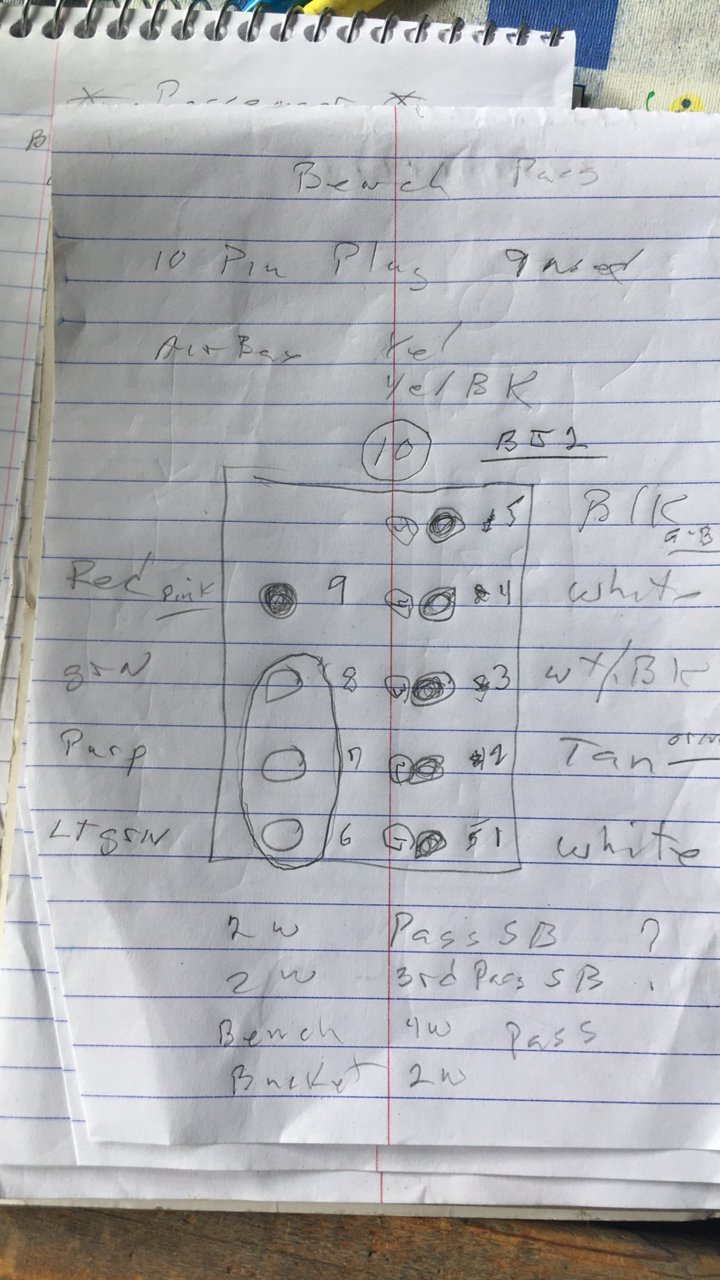 * Passenger *
B
Bench Pass
10 Pin Plug 9 used
Air Bag Yel
Yel/BK
10 BJ2
5 Blk
Red pink 9 4 white
grn 8 3 wt/BK
Purp 7 2 Tan
Lt grn 6 1 white
2 w Pass SB ?
2 w 3rd Pass SB .
Bench 4w Pass
Bucket 2w